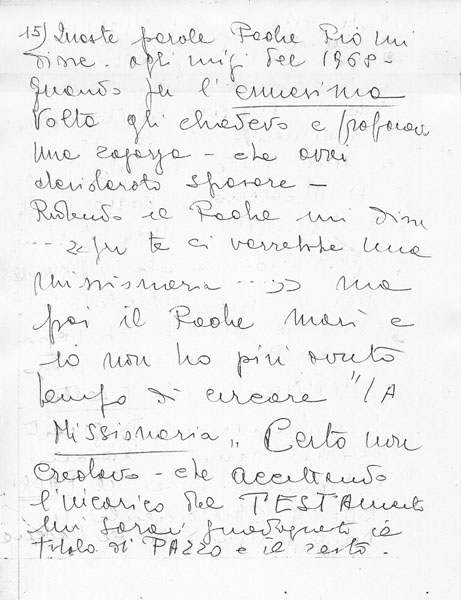 15) Queste parole Padre Pio mi
disse - agli inizi del 1968 -
Quando per l'ennesima
Volta gli chiedevo e proponevo
una ragazza - che avrei
desiderato sposare -
Ridendo il Padre mi disse
... « per te ci vorrebbe una
missionaria ... » ma
poi il Padre morì e
io non ho più avuto
tempo di cercare "lA
MiSSionaria„ Certo non
Credevo - che accettando
l'incarico del TESTAmento
mi sarei guadagnato il
Titolo di PAZZO e il resto.